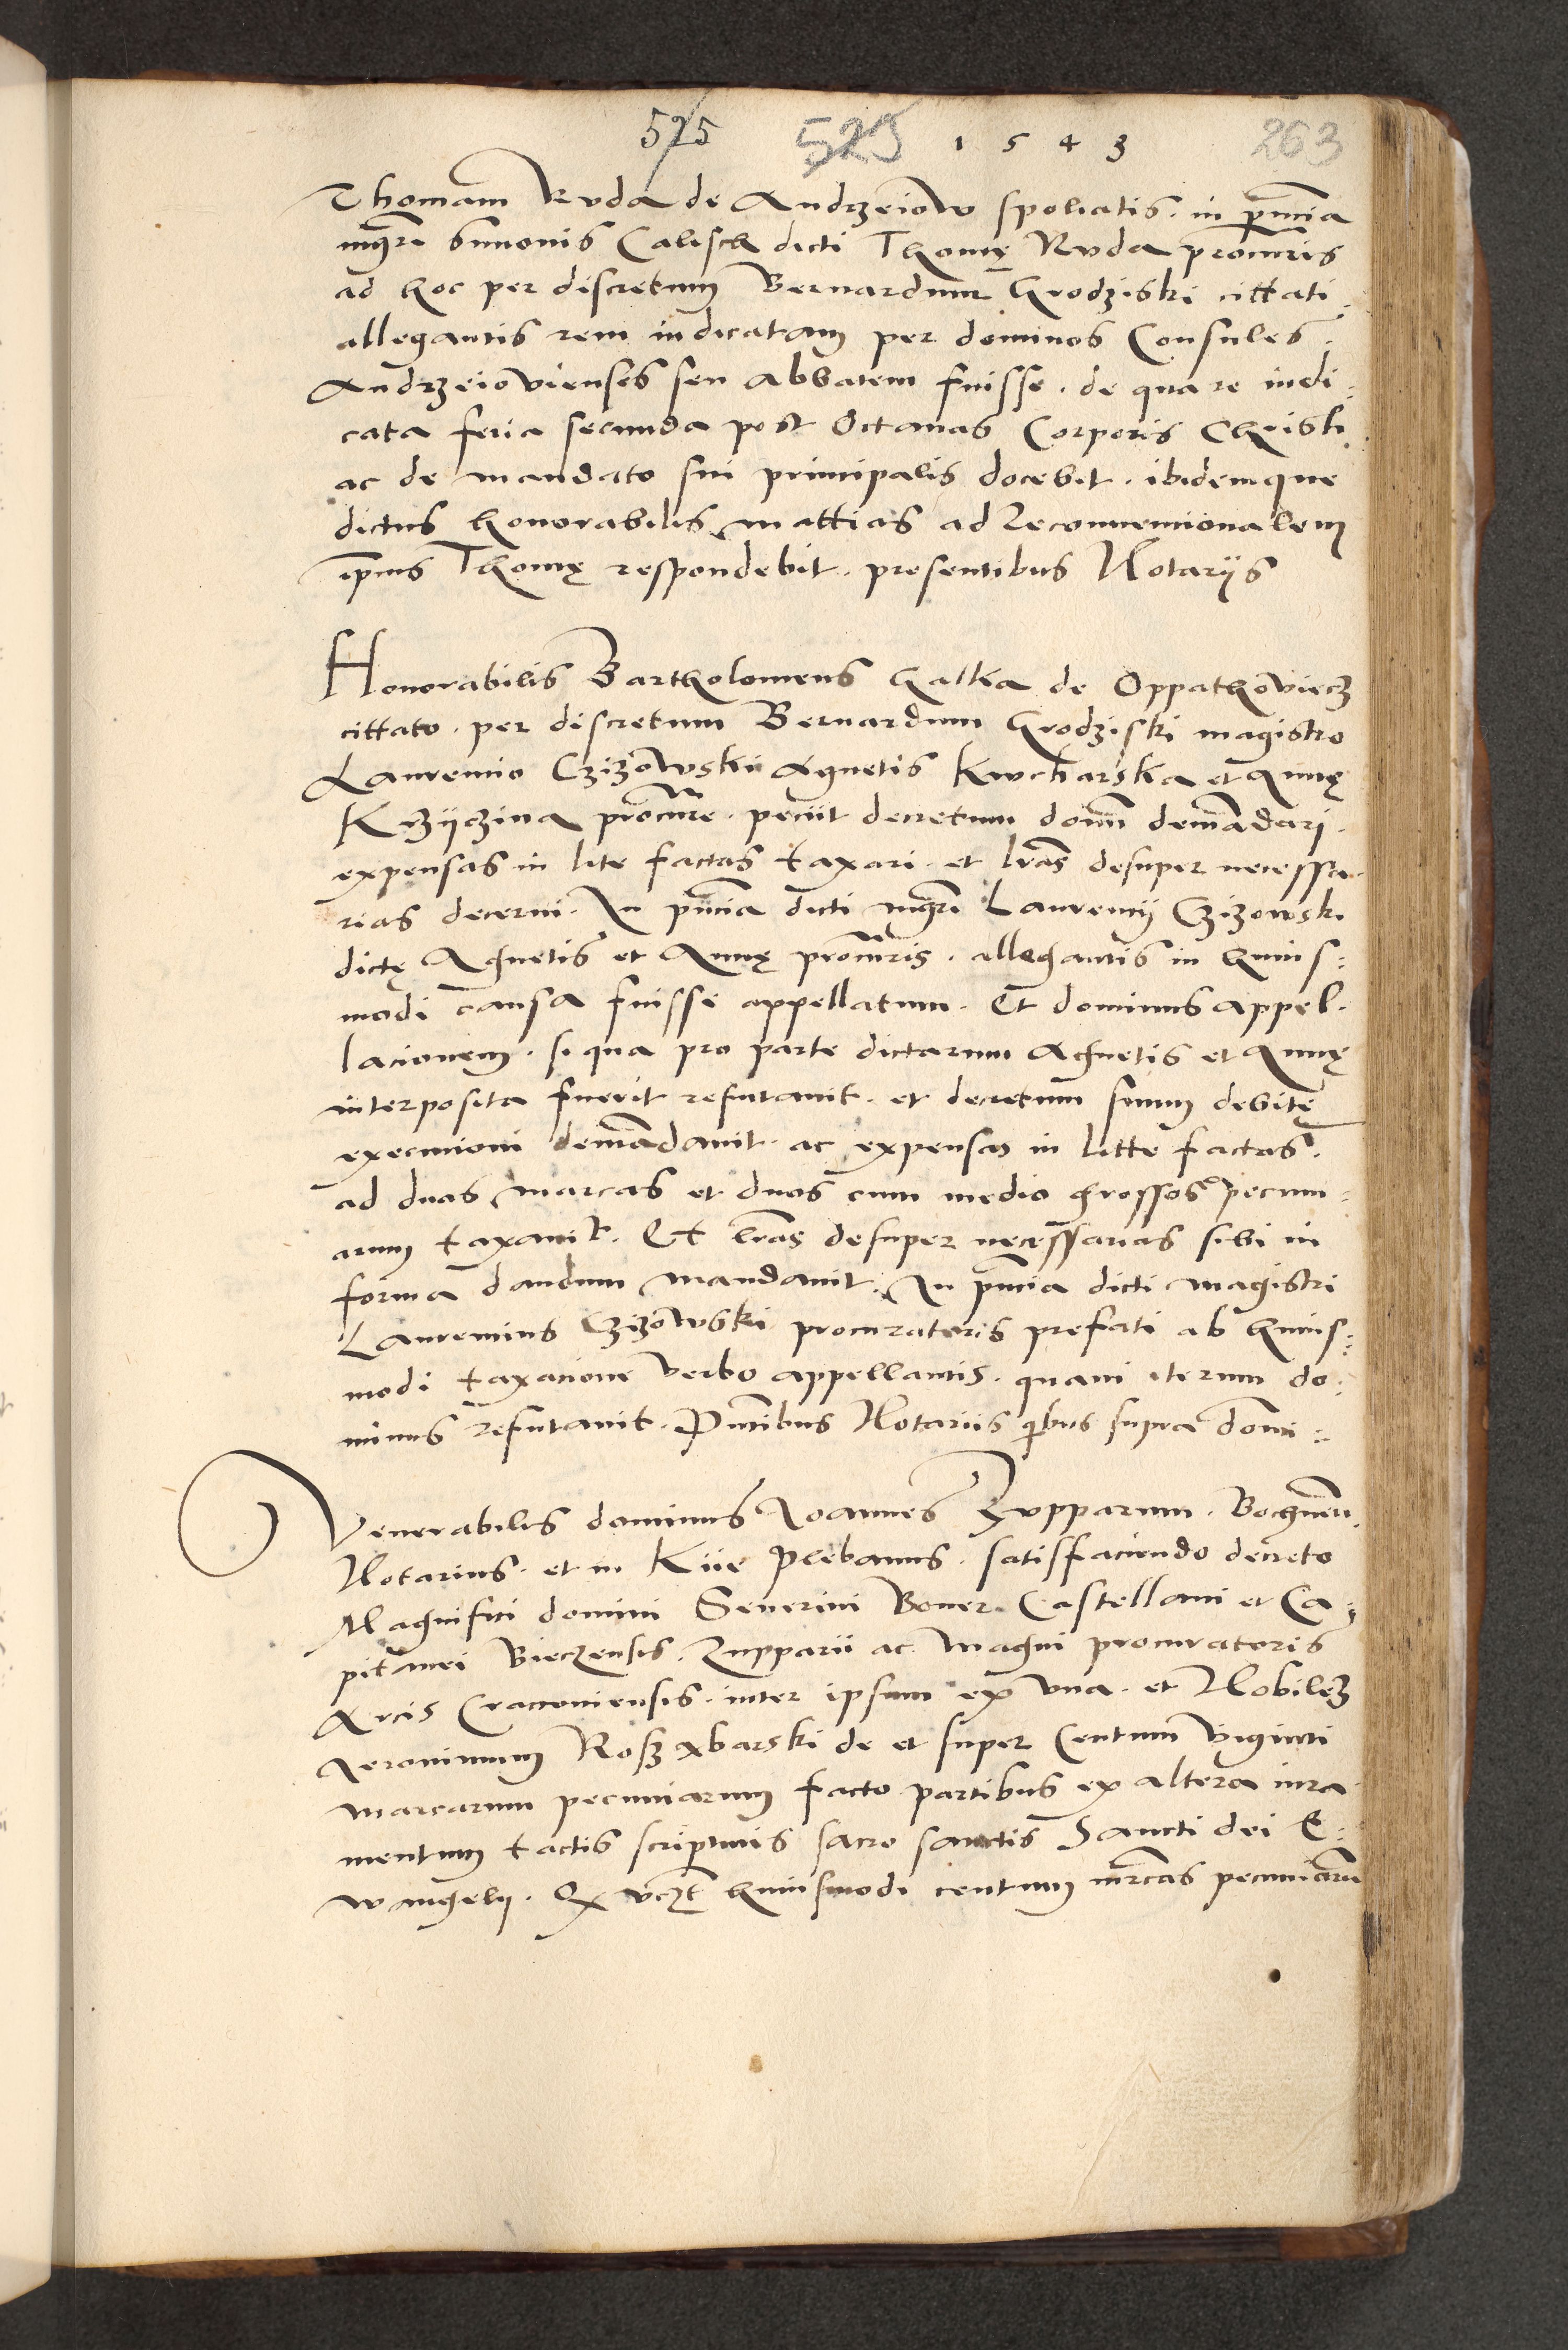 525 529 1543 263
Thomam Ruda de Andrzeiow spoliatis. in pñcia
mgrĩ Simonis Calisch dicti Thomę Ruda procuris
ad hoc per discretum Bernardum Grodziski cittati
allegantis rem iudicatam per dominos Consules.
Andrzeiovienses seu Abbatem fuisse. de qua re iudi:
cata feria secunda post Octauas Corporis Christi
ac de mandato sui principalis docebit. ibidemque
dictus honorabilis Mattias ad Reconuencionalem
ipius Thomę respondebit. presentibus Notariis
Honorabilis Bartholomeus Galka de Oppathowiecz
cittato. per discretum Bernardum Grodziski magistro
Laurencio Czizowski Agnetis Kucharska et Annę
Krziiczina procure. peciit decretum domi demãdari.
expensas in lite factas taxari. et lrãs desuper necessa.
rias decerni. In pñcia dicti mgrĩ Laurencij Czizowski
dictę Agnetis et Annę procuris. allegantis in huius:
modi causa fuisse appellatum. Et dominus appel.
lacionem. si qua pro parte dictarum Agnetis et Annę
interposita fuerit refutauit. et decretum suum debitę
execucioni demãdauit. ac expensas in litte factas.
ad duas marcas et duos cum medio grossos pecuni:
arum taxauit. Et lrãs desuper necessarias sibi in
forma dandum mandauit. In pñcia dicti magistri
Laurencius Czizowski procuratoris prefati ab huius:
modi taxacione verbo appellantis. quam iterum do:
minus refutauit. Pñtibus Notariis qibus supra domi:
Venerabilis dominus Joannes Zupparum. Bochneñ.
Notarius. et in Kiie Plebanus. satisfaciendo decreto
Magnifici domini Seuerini Boner. Castellani et Ca:
pitanei Bieczensis. Zupparii ac magni procuratoris
Arcis Cracouiensis. inter ipsum ex vna. et Nobilem
Jeronimum Roszxbarski de et super Centum viginti
marcarum pecuniarum facto partibus ex altera iura
mentum tactis scripturis sacro sanctis Sancti dei E:
wangelij. Qx vczt huiusmodi centum mrcas pecuniarũ